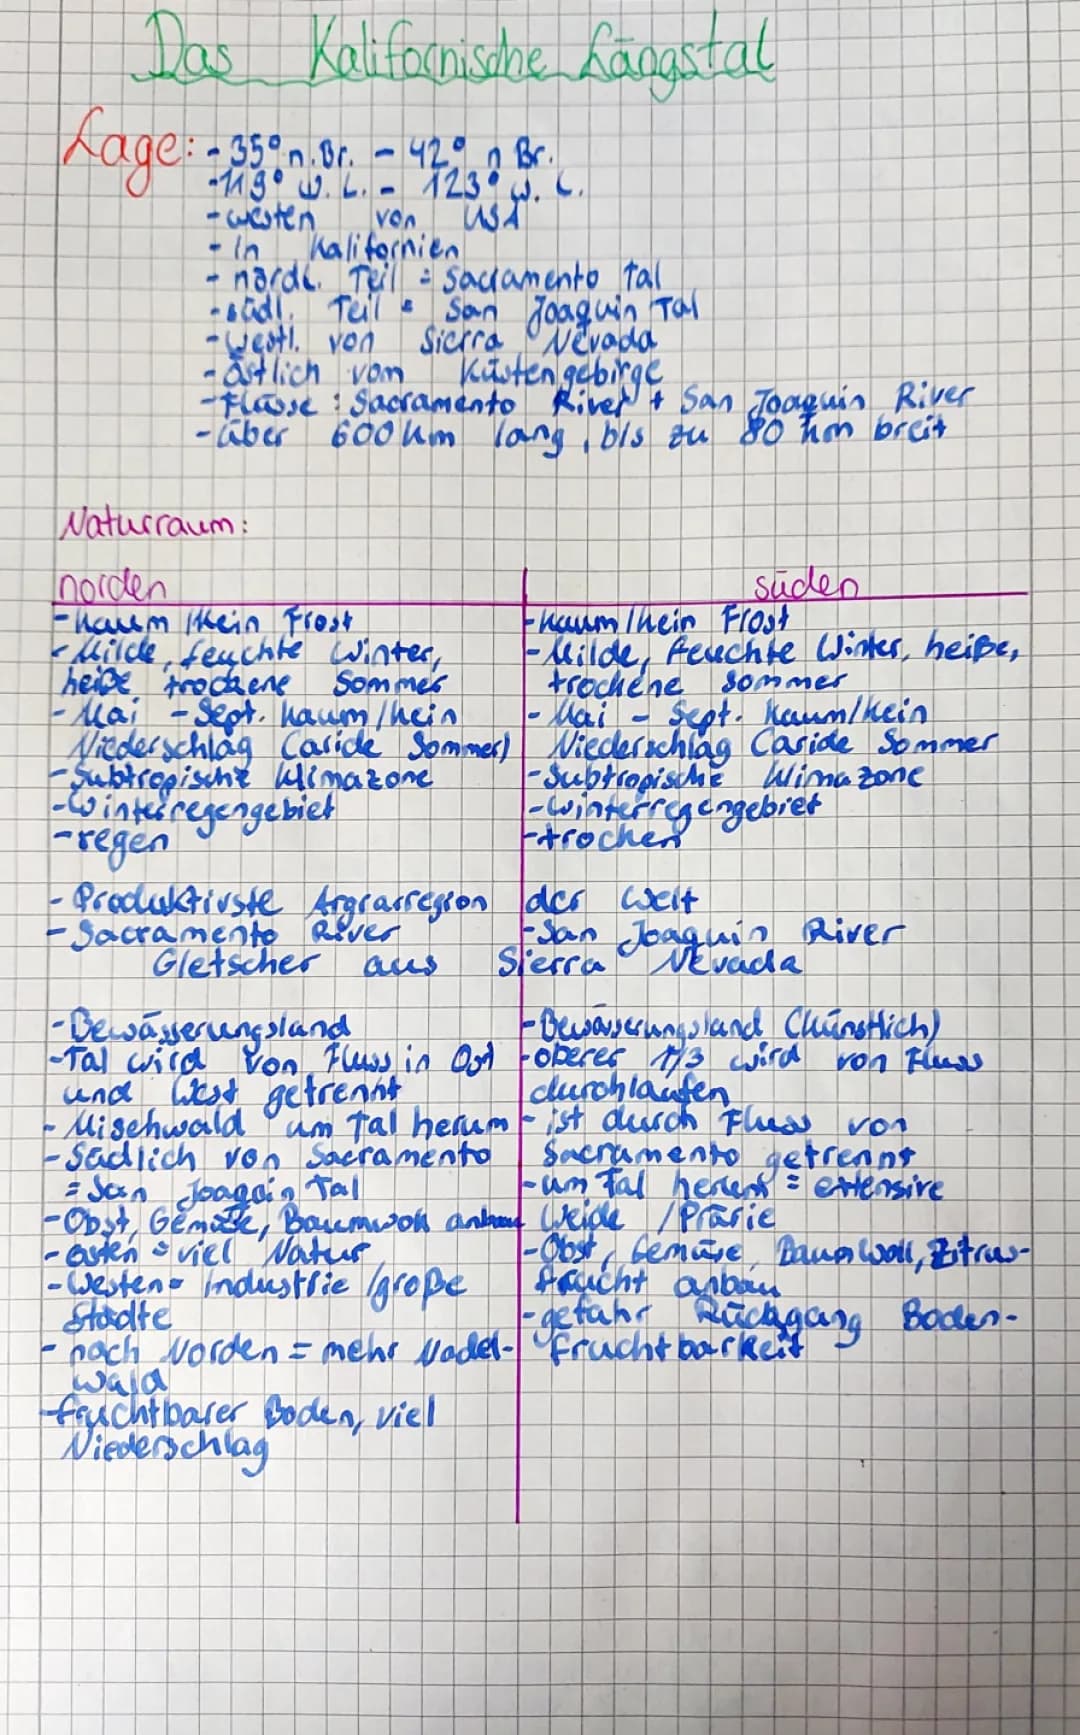 Das Kalifornische Längstal
Lage: - 35° n. Br. - 42° n Br.
- 119° w. L. - 123° w. L.
- westen von USA
- in Kalifornien
- nördl. Teil = Sacramento Tal
- südl. Teil = San Joaquin Tal
- westl. von Sierra Nevada
- Östlich vom Küstengebirge
- Flüsse: Sacramento River + San Joaquin River
- über 600 km lang, bis zu 80 km breit
Naturraum:
norden
- kaum / kein Frost
- Milde, feuchte Winter,
heiße trockene Sommer
- Mai - Sept. kaum/kein
Niederschlag (aride Sommer)
- Subtropische Klimazone
- Winterregengebiet
- regen
süden
- kaum / kein Frost
- Milde, feuchte Winter, heiße,
trockene Sommer
- Mai - Sept. kaum/kein
Niederschlag (aride Sommer
- Subtropische Klimazone
- winterregengebiet
- trocken
- Produktivste Argrarregion der Welt
- Sacramento River - San Joaquin River
Gletscher aus Sierra Nevada
- Bewässerungsland
- Tal wird von Fluss in Ost
und West getrennt
- Mischwald um Tal herum
- Südlich von Sacramento
= San Joaquin Tal
- Obst, Gemüse, Baumwoll anbau
- osten = viel Natur
- Westen = Industrie / große
Städte
- nach Norden = mehr Nadel-
wald
- fruchtbarer Boden, viel
Niederschlag
- Bewässerungsland (künstlich)
- oberer 1/3 wird von Fluss
durchlaufen
- ist durch Fluss von
Sacramento getrennt
- um Tal herum = extensive
Weide / Prärie
- Obst, Gemüse, Baumwoll, Zitrus-
frucht anbau
- gefahr Rückgang Boden-
fruchtbarkeit